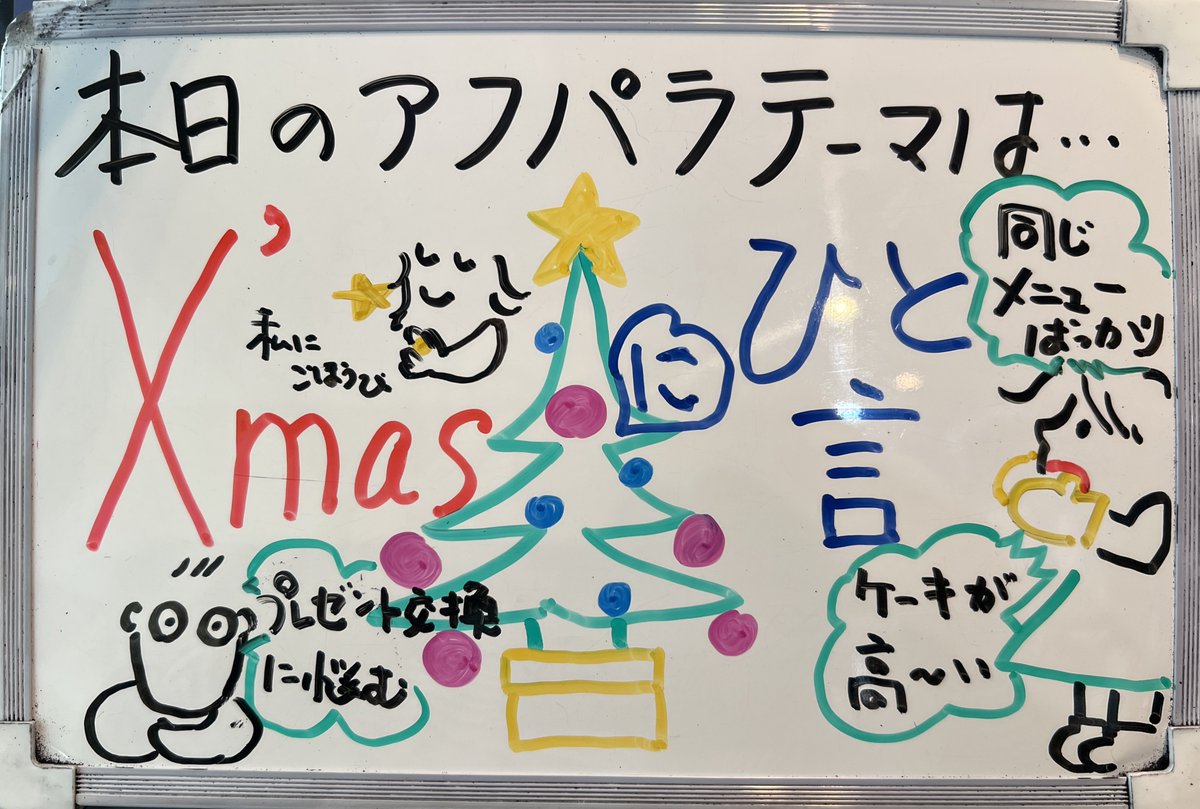 本日のアフパラテーマは…
X'mas
に
ひと
言
私に
ごほうび
同じ
メニュー
ばっかり
プレゼント交換
に悩む
ケーキが
高〜い